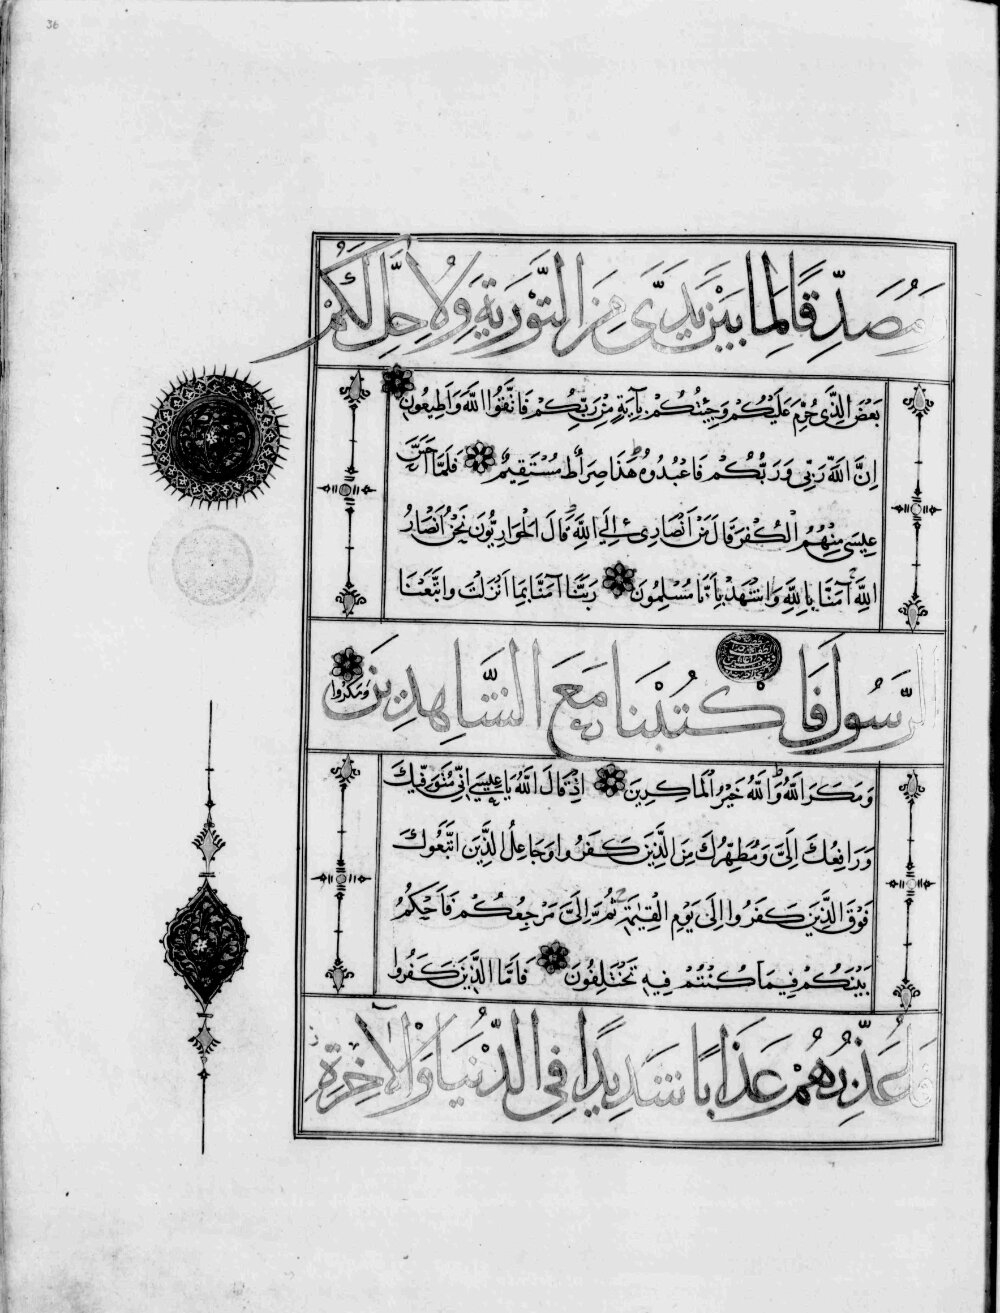 36
وَمُصَدِّقًا لِمَا بَيْنَ يَدَيَّ مِنَ التَّوْرٰيةِ وَلِأُحِلَّ لَكُمْ
بَعْضَ الَّذِى حُرِّمَ عَلَيْكُمْ وَجِئْتُكُمْ بِآيَةٍ مِنْ رَبِّكُمْ فَاتَّقُوا اللَّهَ وَاَطِيعُونِ
اِنَّ اللَّهَ رَبِّى وَرَبُّكُمْ فَاعْبُدُوهُ هٰذَا صِرَاطٌ مُسْتَقِيمٌ فَلَمَّا اَحَسَّ
عِيسَى مِنْهُمُ الْكُفْرَ قَالَ مَنْ اَنْصَارِى اِلَى اللَّهِ قَالَ الْحَوَارِيُّونَ نَحْنُ اَنْصَارُ
اللَّهِ آمَنَّا بِاللَّهِ وَاشْهَدْ بِاَنَّا مُسْلِمُونَ رَبَّنَا آمَنَّا بِمَا اَنْزَلْتَ وَاتَّبَعْنَا
الرَّسُولَ فَاكْتُبْنَا مَعَ الشَّاهِدِينَ وَمَكَرُوا
وَمَكَرَ اللَّهُ وَاللَّهُ خَيْرُ الْمَاكِرِينَ اِذْ قَالَ اللَّهُ يَا عِيسَى اِنِّى مُتَوَفِّيكَ
وَرَافِعُكَ اِلَىَّ وَمُطَهِّرُكَ مِنَ الَّذِينَ كَفَرُوا وَجَاعِلُ الَّذِينَ اتَّبَعُوكَ
فَوْقَ الَّذِينَ كَفَرُوا اِلَى يَوْمِ الْقِيٰمَةِ ثُمَّ اِلَىَّ مَرْجِعُكُمْ فَاَحْكُمُ
بَيْنَكُمْ فِيمَا كُنْتُمْ فِيهِ تَخْتَلِفُونَ فَاَمَّا الَّذِينَ كَفَرُوا
فَاُعَذِّبُهُمْ عَذَابًا شَدِيدًا فِى الدُّنْيَا وَالْآخِرَةِ